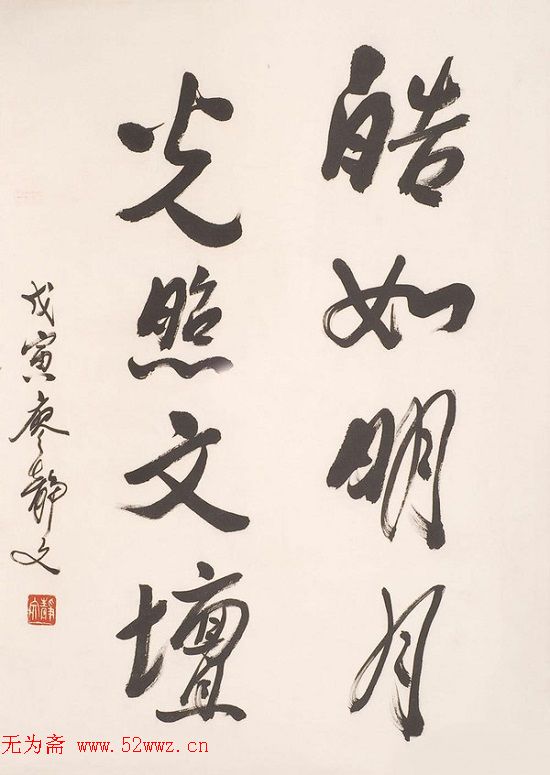 皓如明月
光照文壇
戊寅廖静文
静文
无为斋 www.52wwz.cn